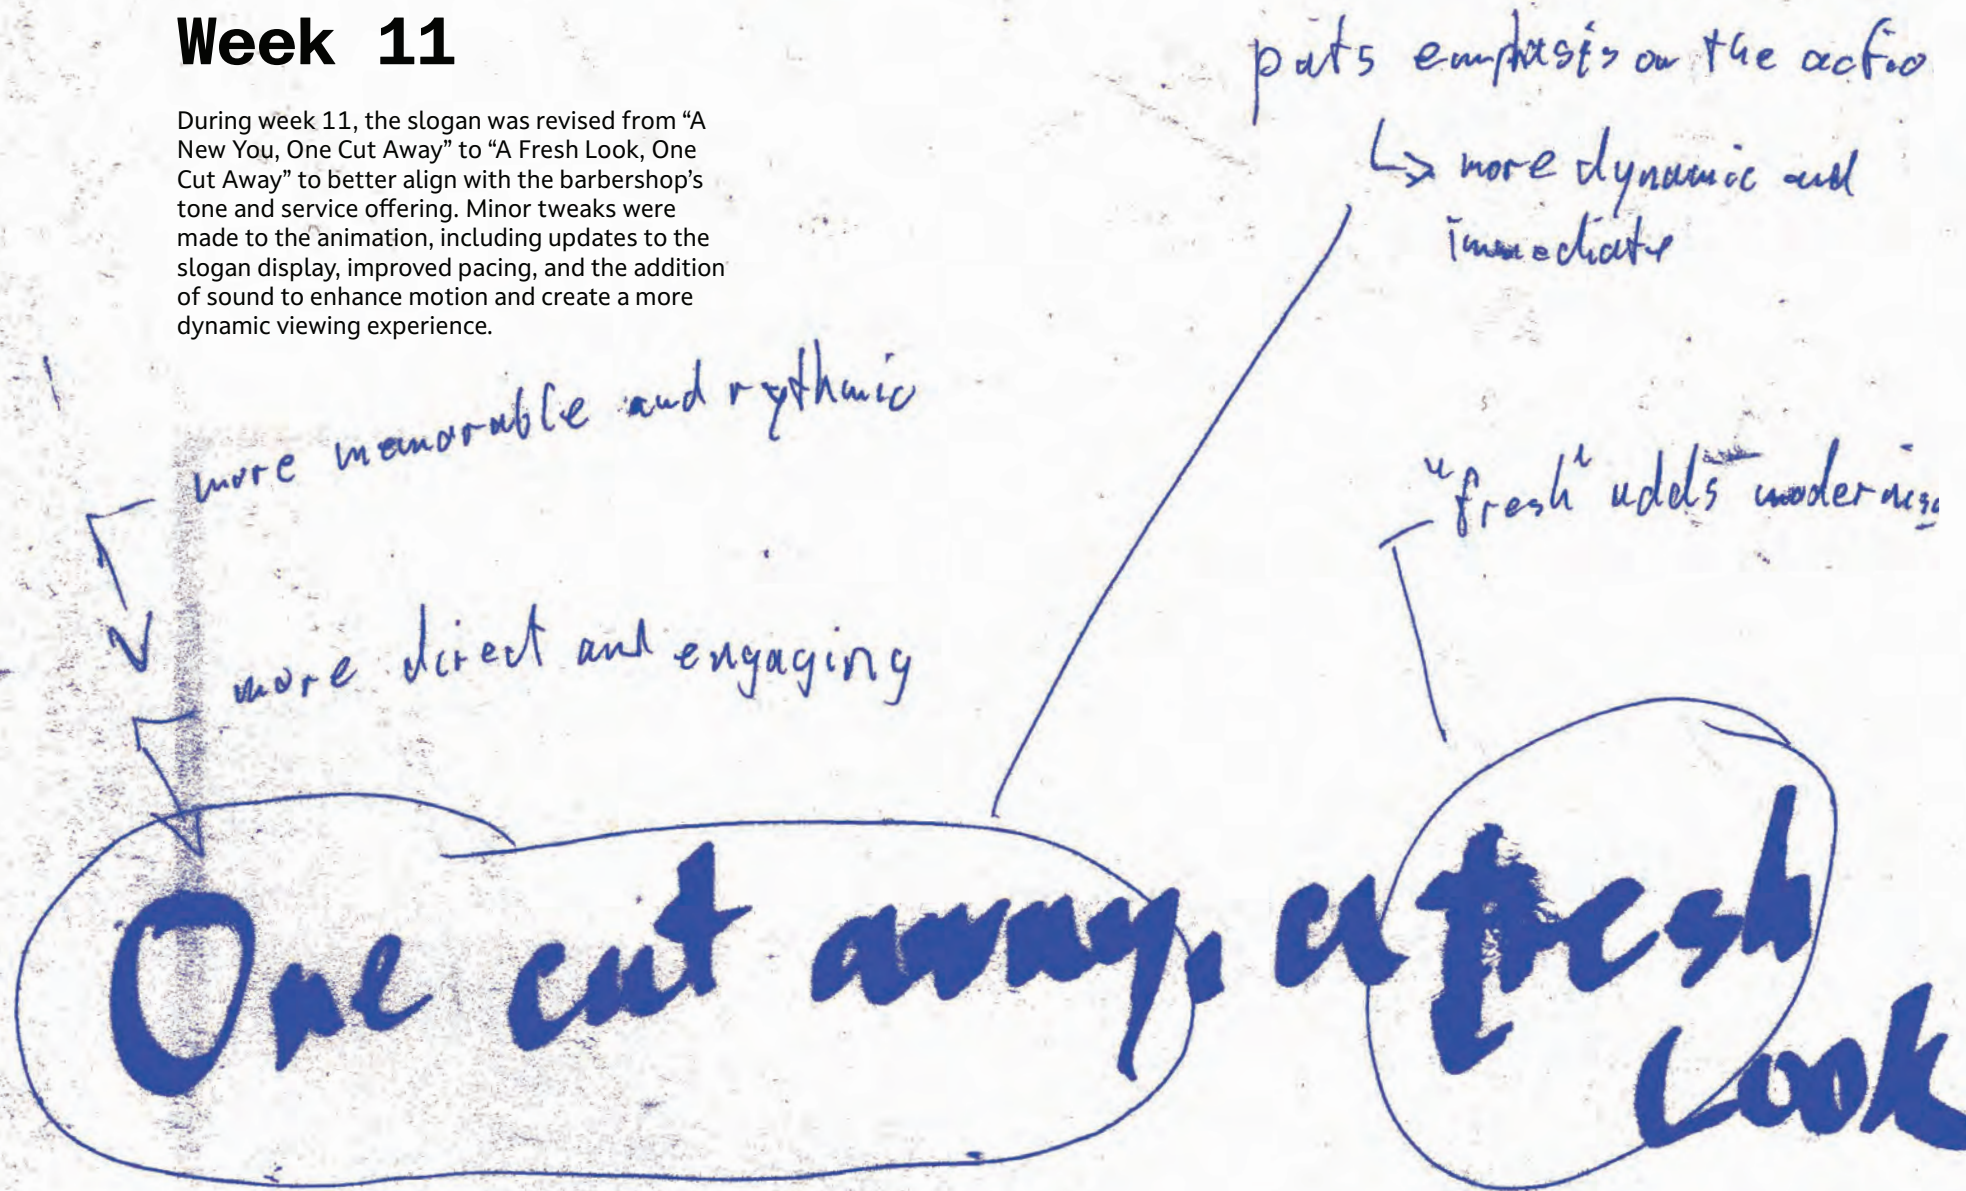 Week 11
During week 11, the slogan was revised from “A
New You, One Cut Away” to “A Fresh Look, One
Cut Away” to better align with the barbershop’s
tone and service offering. Minor tweaks were
made to the animation, including updates to the
slogan display, improved pacing, and the addition
of sound to enhance motion and create a more
dynamic viewing experience.
puts emphasis on the actio
more dynamic and
immediate
more memorable and rythmic
"fresh" adds
more direct and engaging
One cut away, a fresh
Look